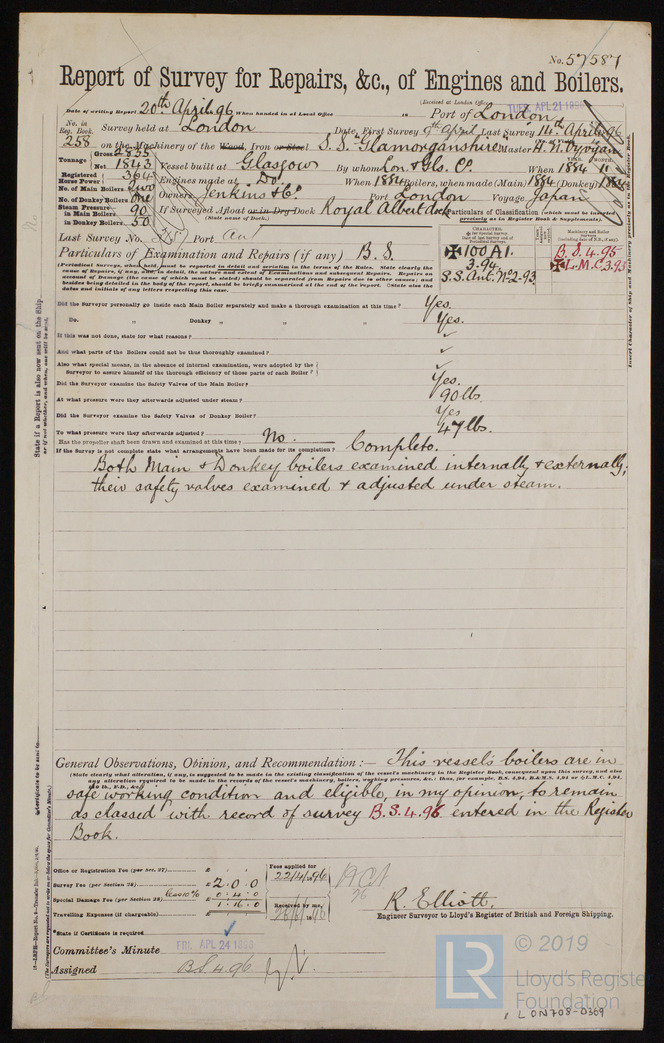 No. 57587
Report of Survey for Repairs, &c., of Engines and Boilers.
(Received at London Office TUES. APL 21 1896
Date of writing Report 20th April 96 When handed in at Local Office in Port of London
No. in Reg. Book. Survey held at London Date, First Survey 9th April Last Survey 14th April 96
258 on the Machinery of the Wood, Iron or Steel S.S. Glamorganshire Master H. N. Vyvyan
Tonnage Gross 2835
Net 1843 Vessel built at Glasgow By whom Lon. & Gls. Co. When 1884 11
Registered Horse Power 364 Engines made at Do. When 1884 Boilers, when made (Main) 1884 (Donkey) 1884
No. of Main Boilers Two
No. of Donkey Boilers One Owners Jenkins & Co. Port London Voyage Japan
Steam Pressure in Main Boilers 90 If Surveyed Afloat or in Dry Dock Royal Albert dock
in Donkey Boilers 50 (State name of Dock.)
Particulars of Classification (which must be inserted precisely as in Register Book & Supplements).
Last Survey No. Port
Particulars of Examination and Repairs (if any) B.S.
✠100A1. 3.94 S.S. Ant. No2-93
B.S. 4.95 ✠L.M.C. 3.93
(Periodical Surveys, when held, must be reported in detail and seriatim in the terms of the Rules. State clearly the
cause of Repairs, if any, and, in detail, the nature and extent of Examinations and consequent Repairs. Repairs on
account of Damage (the cause of which must be stated) should be separated from Repairs due to other causes; and
besides being detailed in the body of the report, should be briefly summarised at the end of the report. State also the
dates and initials of any letters respecting this case.
Did the Surveyor personally go inside each Main Boiler separately and make a thorough examination at this time? Yes.
Do. Donkey „ „ „ Yes.
If this was not done, state for what reasons? ✓
And what parts of the Boilers could not be thus thoroughly examined? ✓
Also what special means, in the absence of internal examination, were adopted by the
Surveyor to assure himself of the thorough efficiency of those parts of each Boiler? ✓
Did the Surveyor examine the Safety Valves of the Main Boiler? Yes.
At what pressure were they afterwards adjusted under steam? 90 lbs.
Did the Surveyor examine the Safety Valves of Donkey Boiler? Yes
To what pressure were they afterwards adjusted? 47 lbs.
Has the propeller shaft been drawn and examined at this time? No.
If the Survey is not complete state what arrangements have been made for its completion? Complete.
Both Main & Donkey boilers examined internally & externally;
their safety valves examined & adjusted under steam.
General Observations, Opinion, and Recommendation :— This vessel's boilers are in
(State clearly what alteration, if any, is suggested to be made in the existing classification of the vessel's machinery in the Register Book, consequent upon this survey, and also
any alteration required to be made in the records of the vessel's machinery, boilers, working pressures, &c.: thus, for example, B.S. 4,94, B.&M.S. 4,94 or ✠L.M.C. 4,94,
safe working condition and eligible, in my opinion, to remain
as classed with record of survey B.S. 4.96 entered in the Register
Book.
Office or Registration Fee (per Sec. 27) £
Survey Fee (per Section 28) £ 2:0:0
Less 10% 0:4:0
Special Damage Fee (per Section 28) £ 1:16:0
Travelling Expenses (if chargeable) £
Fees applied for
22/4/96
Received by me,
R. Elliott.
Engineer Surveyor to Lloyd's Register of British and Foreign Shipping.
*State if Certificate is required ✓
Committee's Minute FRI. APL 24 1896
Assigned B.S. 4.96
State if a Report is also now sent on the Ship
or if not whether, and when, one will be sent.
Certificate to be sent to
(The Surveyors are requested not to write on or below the space for Committee's Minute.)
Insert Character of Ship and Machinery precisely as in the Register Book.
© 2019
LR
Lloyd's Register
Foundation
LON708-0309